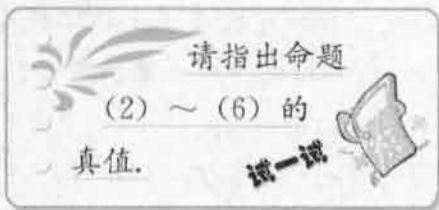 请指出命题
（2）～（6）的
真值.
试一试